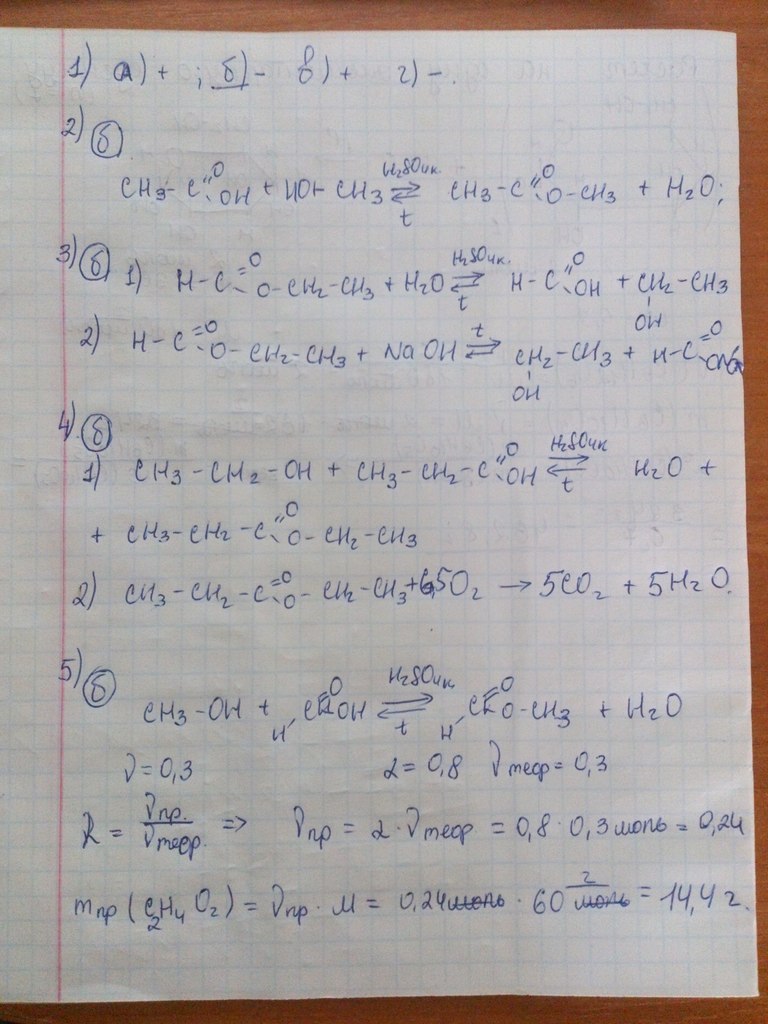 1) а) + ; б) - в) + г) - .
2) б
CH3 - C =O OH + HO+ CH3 ⇌ H2SO4к. t CH3 - C =O O - CH3 + H2O;
3) б 1) H - C =O O - CH2 - CH3 + H2O ⇌ H2SO4к. t H - C =O OH + CH2 - CH3 OH
2) H - C =O O - CH2 - CH3 + NaOH ⇌ t CH2 - CH3 OH + H - C =O ONa
4) б
1) CH3 - CH2 - OH + CH3 - CH2 - C =O OH ⇌ H2SO4к t H2O +
+ CH3 - CH2 - C =O O - CH2 - CH3
2) CH3 - CH2 - C =O O - CH2 - CH3 + 6,5O2 → 5CO2 + 5H2O.
5) б
CH3 - OH + H C =O OH ⇌ H2SO4к. t H C =O O - CH3 + H2O
ν = 0,3 α = 0,8 νтеор = 0,3
α = νпр. / νтеор. => νпр = α · νтеор = 0,8 · 0,3 моль = 0,24
mпр (C2H4O2) = νпр · M = 0,24 моль · 60 г/моль = 14,4 г.